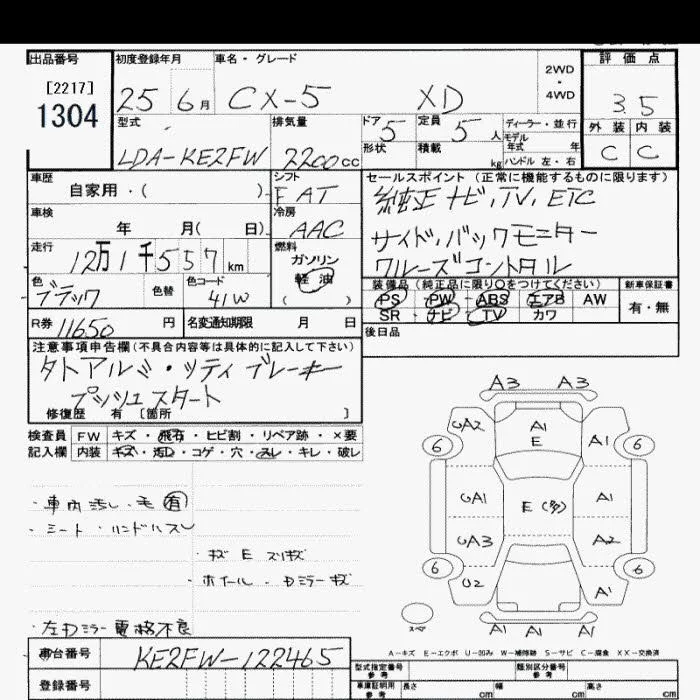 出品番号 初度登録年月 車名・グレード 評価点
[2217]
1304
25 6月 CX-5 XD
2WD
・
4WD
3.5
外装 内装
C C
型式 排気量 ドア 定員 ディーラー・並行
LDA-KE2FW 2200cc 5 5人 モデル年式 年
形状 積載 kg ハンドル 左・右
車歴 シフト セールスポイント (正常に機能するものに限ります)
自家用・( ) FAT 純正ナビ、TV、ETC
車検 冷房
年 月( 日) AAC サイド、バックモニター
走行 燃料
12万1千557km ガソリン クルーズコントロル
軽油
( )
色 色替 色コード
ブラック 41W
装備品 (純正品に限り○をつけてください) 新車保証書
PS PW ABS エアB AW 有・無
SR ナビ TV カワ
R券 11650円 名変通知期限 月 日 後日品
注意事項申告欄(不具合内容等は具体的に記入して下さい)
プッシュスタート
修復歴 有 [箇所 ]
検査員 FW キズ・飛石・ヒビ割・リペア跡・×要
記入欄 内装 キズ・汚れ・コゲ・穴・スレ・キレ・破レ
・車内汚レ・毛有
・シート・ハンドルスレ
・キズ E スリキズ
・ホイール・Dミラーキズ
・左Dミラー電格不良
A3 A3
UA2 A1 E A1
6 6
UA1 E(多) A1
UA3 A2
6 6
U2 A1
スペア A1 A1 A1
A-キズ E-エクボ U-凹み W-補修跡 S-サビ C-腐食 XX-交換済
車台番号 KE2FW-122465
登録番号
型式指定番号 参考 類別区分番号 参考
車庫証明用 参考 長さ cm 幅 cm 高さ cm